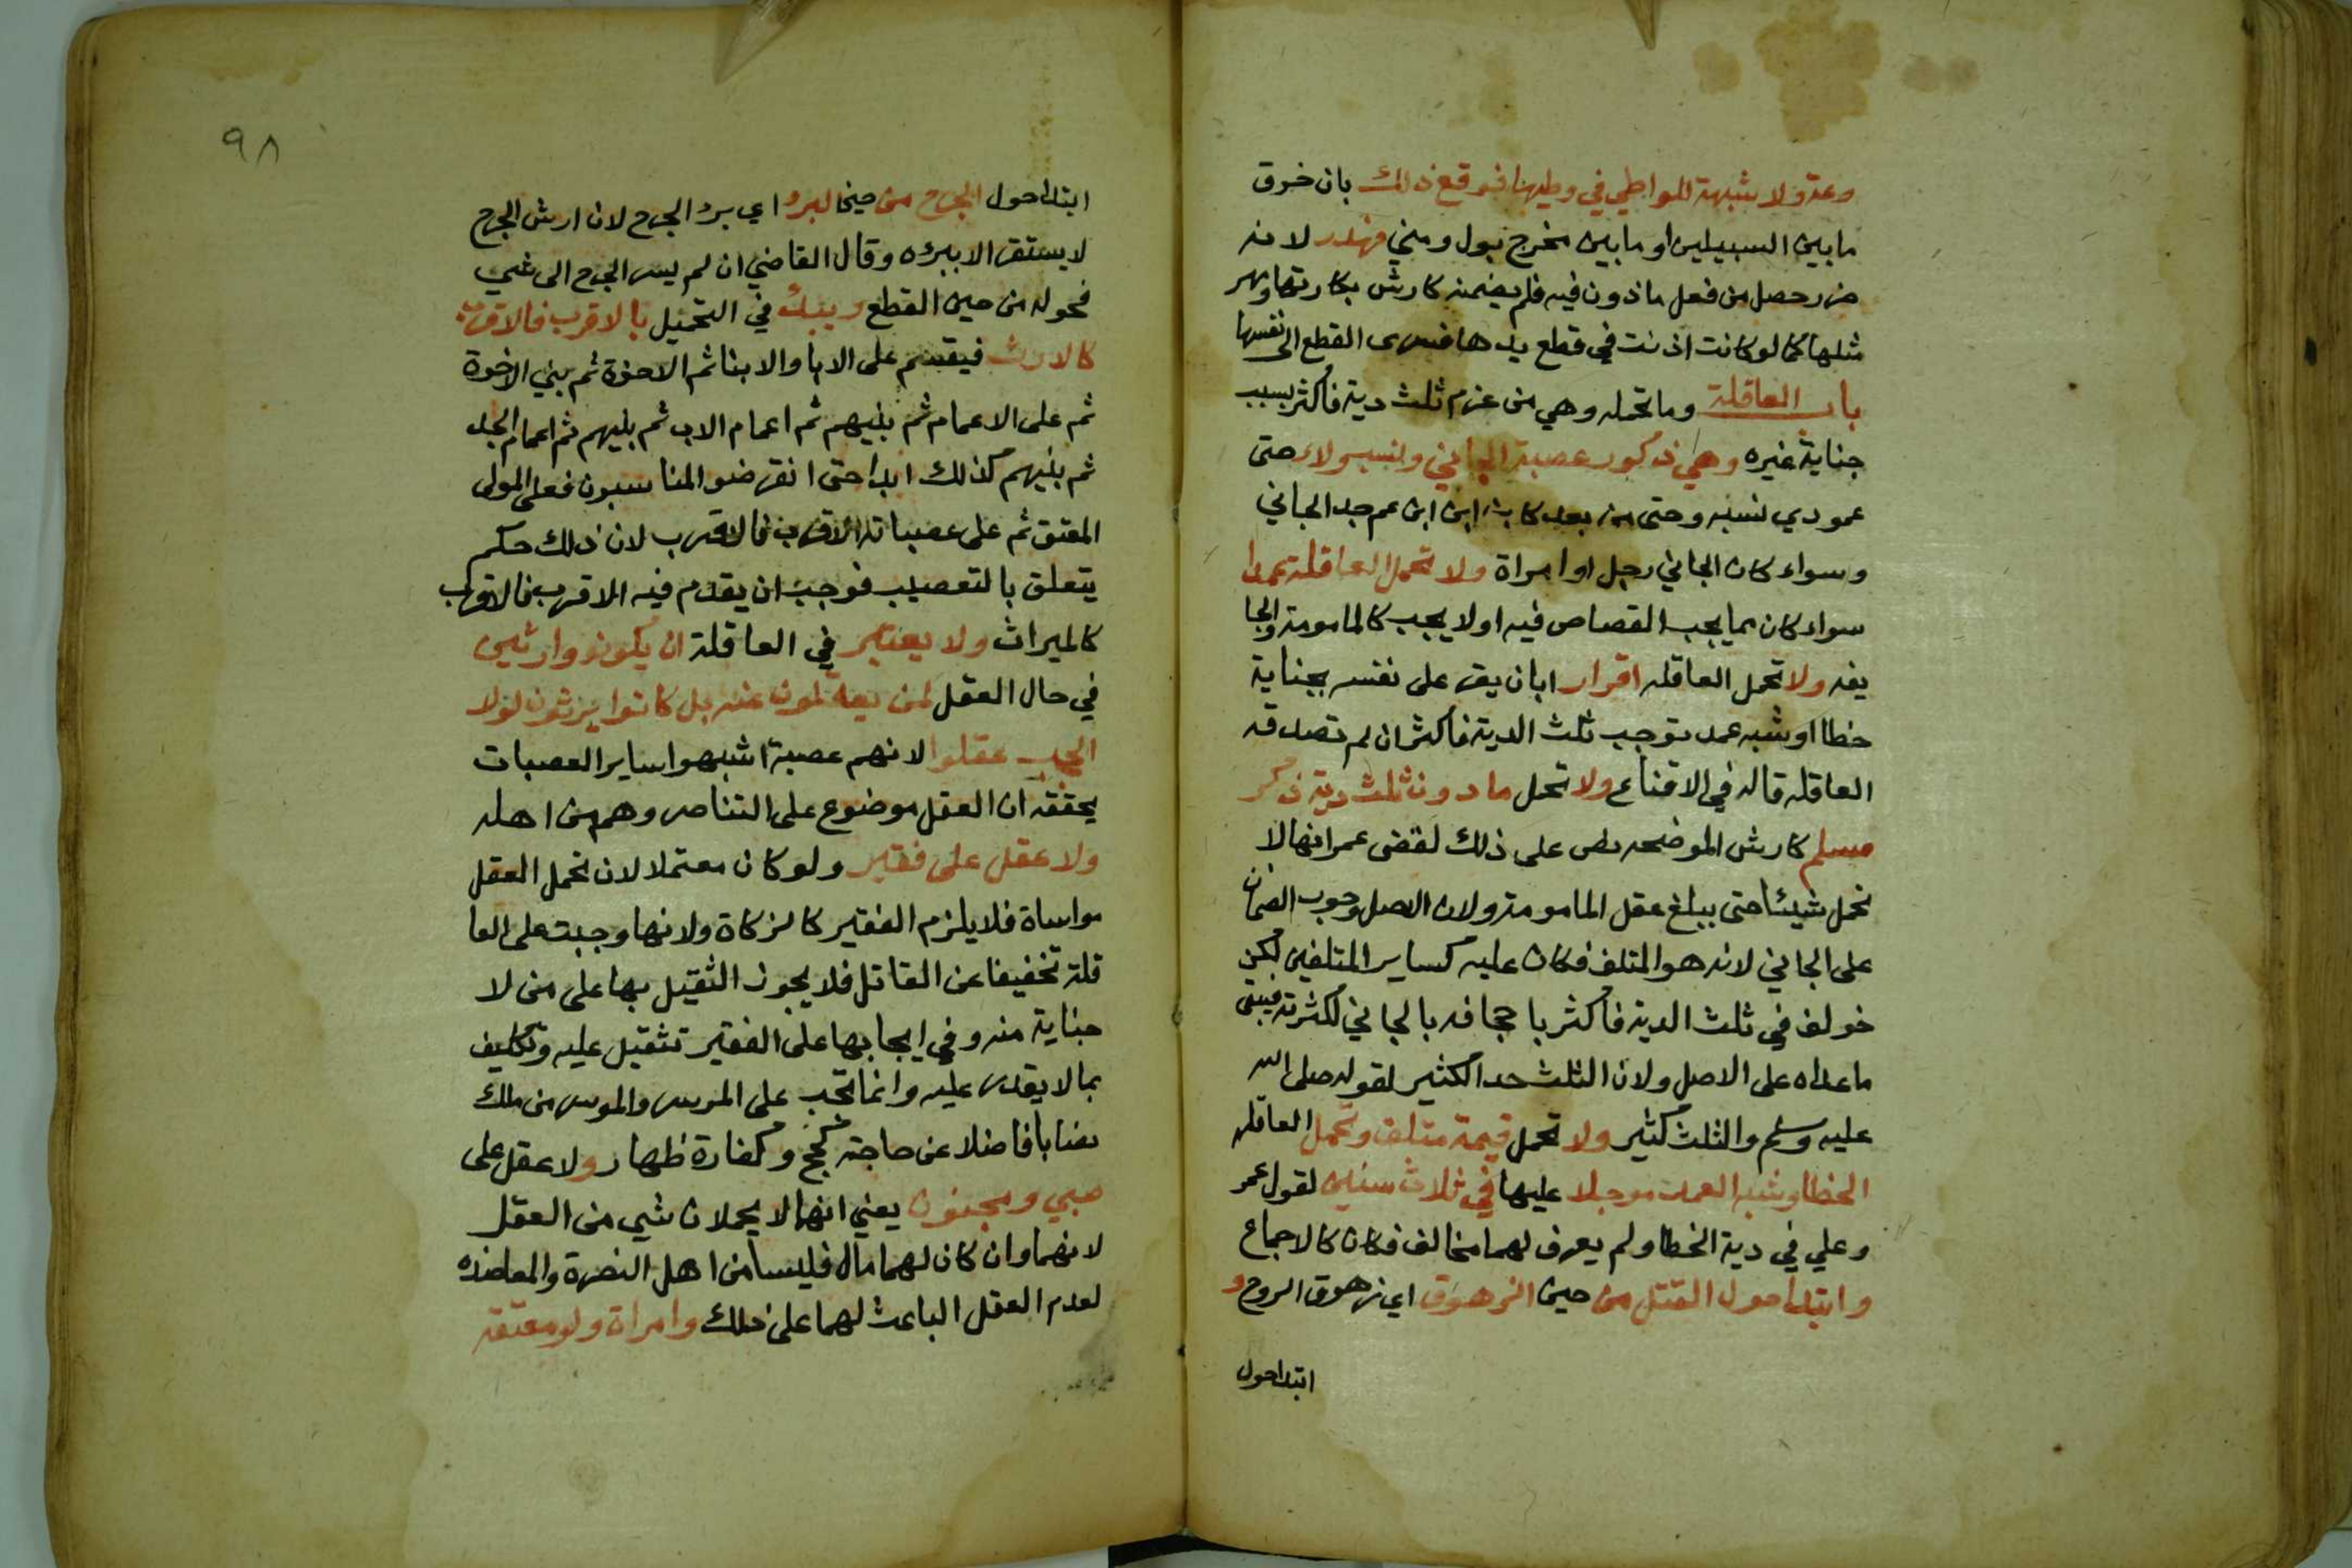 وعة ولا شبهة للواطي في وطيها فوقع ذلك بان خرق
ما بين السبيلين او ما بين مخرج بول ومني فهدر لانه
ضرر حصل من فعل ماذون فيه فلم يضمنه كارش بكارتها ومهر
مثلها كما لو كانت اذنت في قطع يدها فسرى القطع الى نفسها
باب العاقلة وما تحمله وهي من غرم ثلث دية فاكثر بسبب
جناية غيره وهي ذكور عصبة الجاني ونسب وولاء حتى
عمودي نسبه وحتى من بعد كابن ابن ابن عم جد الجاني
وسواء كان الجاني رجل او امراة ولا تحمل العاقلة عمدا
سواء كان مما يجب القصاص فيه او لا يجب كالمامومة والجا
يفه ولا تحمل العاقله اقرارا بان يقر على نفسه بجناية
خطا او شبه عمد توجب ثلث الدية فاكثر ان لم تصدقه
العاقله قاله في الاقناع ولا تحمل ما دون ثلث دية ذكر
مسلم كارش الموضحه نص على ذلك لقضى عمر انها لا
تحمل شيئا حتى يبلغ عقل المامومة ولان الاصل وجوب الضمان
على الجاني لانه هو المتلف فكان عليه كساير المتلفين لكن
خولف في ثلث الدية فاكثر باجحافه بالجاني لكثرته فيبقى
ما عداه على الاصل ولان الثلث حد الكثير لقوله صلى الله
عليه وسلم والثلث كثير ولا تحمل قيمة متلف وتحمل العاقله
الخطا وشبه العمد موجلا عليها في ثلاث سنين لقول عمر
وعلي في دية الخطا ولم يعرف لهما مخالف فكان كالاجماع
وابتدا حول القتل من حين الزهوق اي زهوق الروح و
ابتدا حول
٩٨
ابتدا حول الجرح من حين البرء اي برء الجرح لان ارش الجرح
لا يستقر الا ببرئه وقال القاضي ان لم يسر الجرح الى شي
فحوله من حين القطع ويبدأ في التحميل بالاقرب فالاقرب
كالارث فيقسم على الابا والابنا ثم الاخوة ثم بني الاخوة
ثم على الاعمام ثم بنيهم ثم اعمام الاب ثم بنيهم ثم اعمام الجد
ثم بنيهم كذلك ابدا حتى انقرضو المناسبون فعلى المولى
المعتق ثم على عصباته الاقرب فالاقرب لان ذلك حكم
يتعلق بالتعصيب فوجب ان يقدم فيه الاقرب فالاقرب
كالميراث ولا يعتبر في العاقلة ان يكونو وارثين
في حال العقل لمن يعقلون عنه بل كانوا يرثون لولا
الحجب عقلوا لانهم عصبة اشبهوا ساير العصبات
يحققه ان العقل موضوع على التناصر وهم من اهله
ولا عقل على فقير ولو كان معتملا لان تحمل العقل
مواساة فلا يلزم الفقير كالزكاة ولانها وجبت على العا
قلة تخفيفا عن القاتل فلا يجوز الثقيل بها على من لا
جناية منه وفي ايجابها على الفقير تثقيل عليه وتكليف
بما لا يقدر عليه وانما تجب على الموسر والموسر من ملك
نصابا فاضلا عن حاجته كحج وكفارة ظهار ولا عقل على
صبي ومجنون يعني انهما لا يحملان شي من العقل
لانهما وان كان لهما مال فليسا من اهل النصرة والمعاضده
لعدم العقل الباعث لهما على ذلك وامراة ولو معتقة